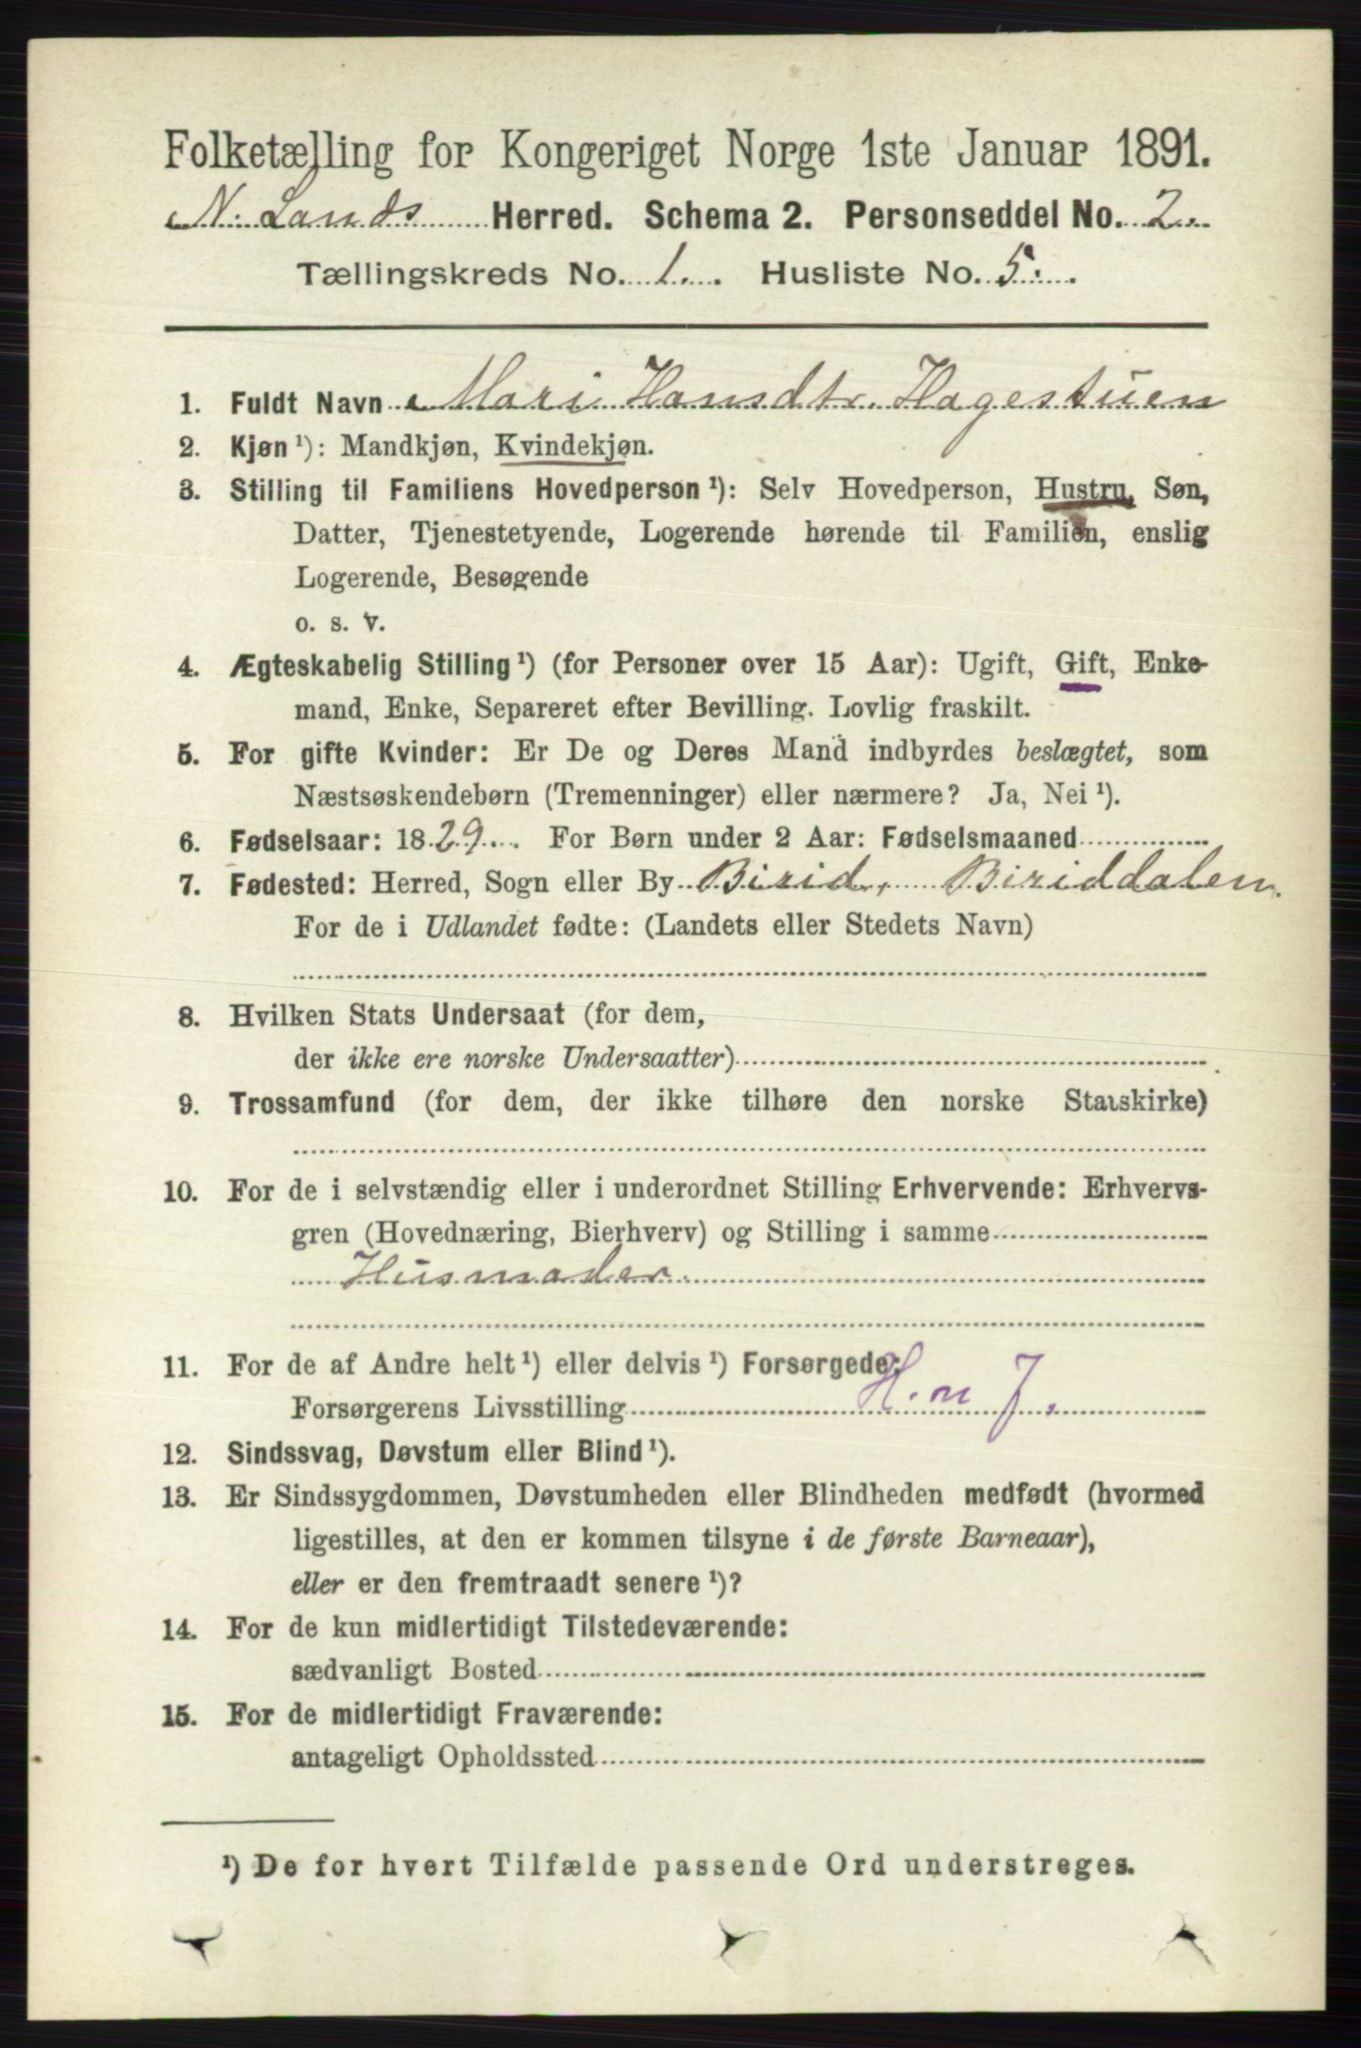 Folketælling for Kongeriget Norge 1ste Januar 1891.
N. Lands Herred. Schema 2. Personseddel No. 2.
Tællingskreds No. 1. Husliste No. 5.
1. Fuldt Navn Mari Hansdtr. Hagestuen
2. Kjøn ¹): Mandkjøn, Kvindekjøn.
3. Stilling til Familiens Hovedperson ¹): Selv Hovedperson, Hustru, Søn,
Datter, Tjenestetyende, Logerende hørende til Familien, enslig
Logerende, Besøgende
o. s. v.
4. Ægteskabelig Stilling ¹) (for Personer over 15 Aar): Ugift, Gift, Enke-
mand, Enke, Separeret efter Bevilling. Lovlig fraskilt.
5. For gifte Kvinder: Er De og Deres Mand indbyrdes beslægtet, som
Næstsøskendebørn (Tremenninger) eller nærmere? Ja, Nei ¹).
6. Fødselsaar: 1829. For Børn under 2 Aar: Fødselsmaaned
7. Fødested: Herred, Sogn eller By Birid, Biriddalen.
For de i Udlandet fødte: (Landets eller Stedets Navn)
8. Hvilken Stats Undersaat (for dem,
der ikke ere norske Undersaatter)
9. Trossamfund (for dem, der ikke tilhøre den norske Statskirke)
10. For de i selvstændig eller i underordnet Stilling Erhvervende: Erhvervs-
gren (Hovednæring, Bierhverv) og Stilling i samme
Husmoder.
11. For de af Andre helt ¹) eller delvis ¹) Forsørgede:
Forsørgerens Livsstilling H. m J.
12. Sindssvag, Døvstum eller Blind ¹).
13. Er Sindssygdommen, Døvstumheden eller Blindheden medfødt (hvormed
ligestilles, at den er kommen tilsyne i de første Barneaar),
eller er den fremtraadt senere ¹)?
14. For de kun midlertidigt Tilstedeværende:
sædvanligt Bosted
15. For de midlertidigt Fraværende:
antageligt Opholdssted
¹) De for hvert Tilfælde passende Ord understreges.